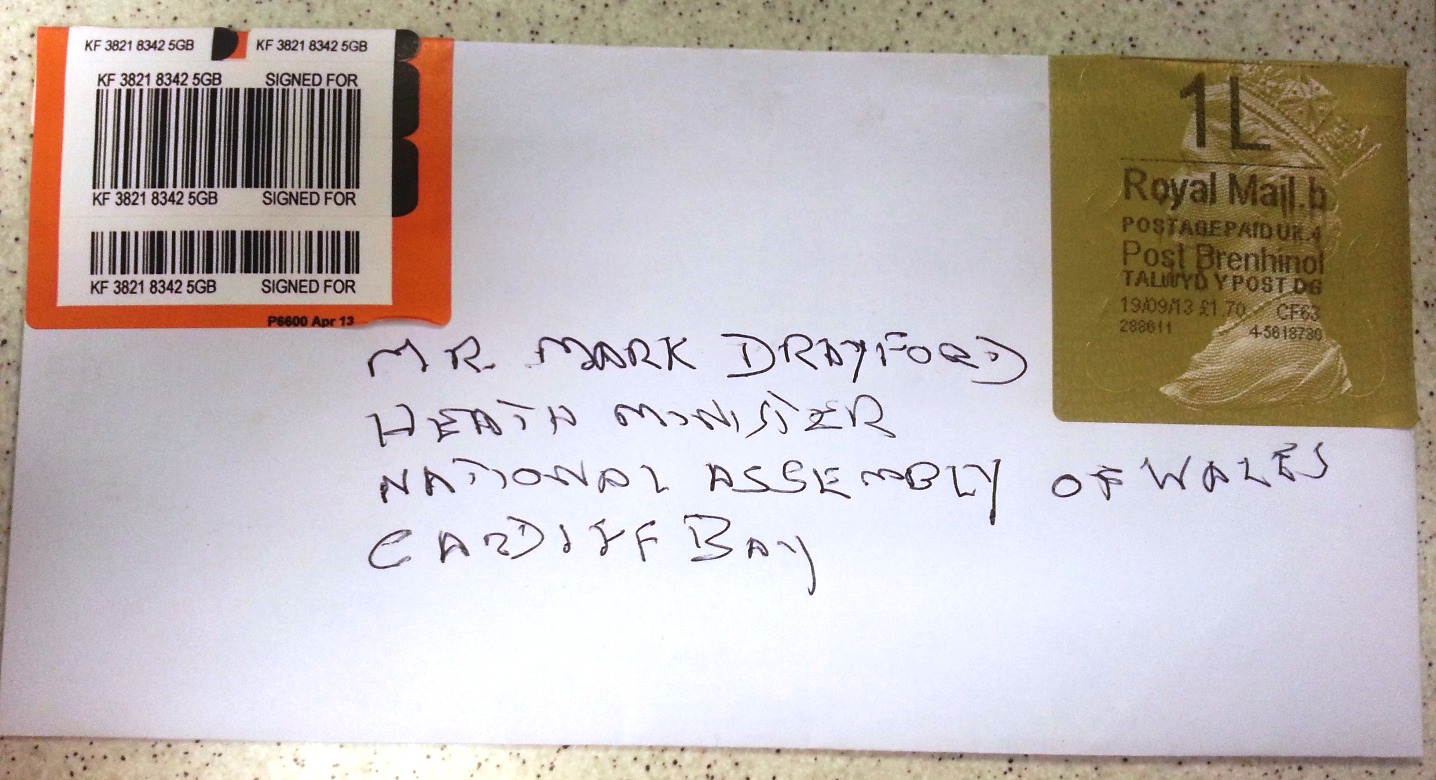 KF 3821 8342 5GB KF 3821 8342 5GB
KF 3821 8342 5GB SIGNED FOR
KF 3821 8342 5GB SIGNED FOR
KF 3821 8342 5GB SIGNED FOR
P6600 Apr 13
1L
Royal Mail.b
POSTAGE PAID UK.4
Post Brenhinol
TALWYD Y POST DG
19/09/13 £1.70 CF63
288611 4-5618730
MR. MARK DRAYFORD
HEATH MINISTER
NATIONAL ASSEMBLY OF WALES
CARDIFF BAY